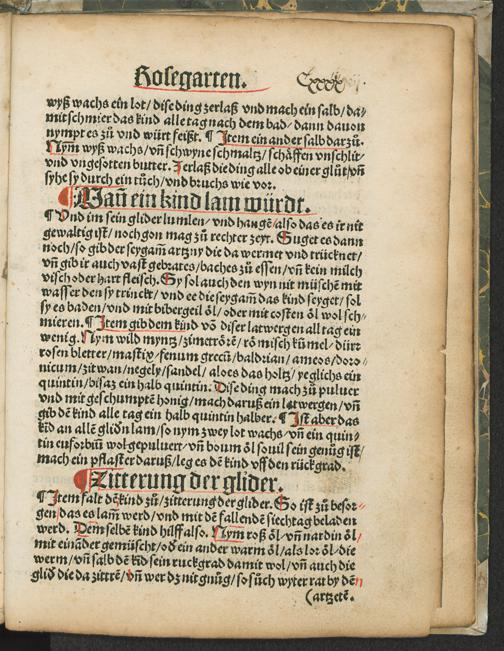 Rosegarten.
wyß wachs ein lot/ dise ding zerlaß vnd mach ein salb/ da⸗
mit schmier das kind alle tag nach dem bad/ dann dauon
nympt es zů vnd würt feißt. ¶ Item ein ander salb dar zů.
Nym wyß wachs/ vñ schwyne schmaltz/ schäffen vnschlit/
vnd vngesotten butter. zerlaß die ding alle ob einer glüt/ vñ
syhe sy durch ein tůch/ vnd bruchs wie vor.
¶ Wañ ein kind lam würdt.
¶ Vnd im sein glider lumlen/ vnd hangẽ/ also das es ir nit
gewaltig ist/ noch gon mag zů rechter zeyt. Suget es dann
noch/ so gib der seygam̃ artzny die da wermet vnd trücknet/
vñ gib ir auch vast gebrates/ baches zů essen/ vñ kein milch
visch oder hart fleisch. Sy sol auch den wyn nit müschẽ mit
wasser den sy trinckt/ vnd ee die seygam̃ das kind seyget/ sol
sy es baden/ vnd mit bibergeil öl/ oder mit costen öl wol sch⸗
mieren. ¶ Item gib dem kind võ diser latwergen all tag ein
wenig. Nym wild myntz/ zimetrörẽ/ rö misch kũmel/ dürr
rosen bletter/ mastix/ fenum grecũ/ baldrian/ ameos/ doro⸗
nicum/ zitwan/ negely/ sandel/ aloes das holtz/ yeglichs ein
quintin/ bisaz ein halb quintin. Dise ding mach zů puluer
vnd mit geschumptẽ honig/ mach daruß ein latwergen/ vñ
gib dẽ kind alle tag ein halb quintin halber. ¶ Ist aber das
kĩd an allẽ glidn lam/ so nym zwey lot wachs/ vñ ein quin⸗
tin euforbiũ wol gepuluert/ vñ boum öl souil sein genůg ist/
mach ein pflaster daruß/ leg es dẽ kind vff den rückgrad.
¶ Zitterung der glider.
¶ Item falt dẽ kind zů/ zitterung der glider. So ist zů besor⸗
gen/ das es lam̃ werd/ vnd mit dẽ fallendẽ siechtag beladen
werd. Dem selbẽ kind hilff also. Nym roß öl/ vñ nardin öl/
mit einãder gemüscht/ oď ein ander warm öl/ als lor öl/ die
werm/ vñ salb dẽ kĩd sein ruckgrad da mit wol/ vñ auch die
glid die da zittrẽ/ vñ wer dz nit gnůg/ so sůch wyter rat by dẽ
(artzetẽ.